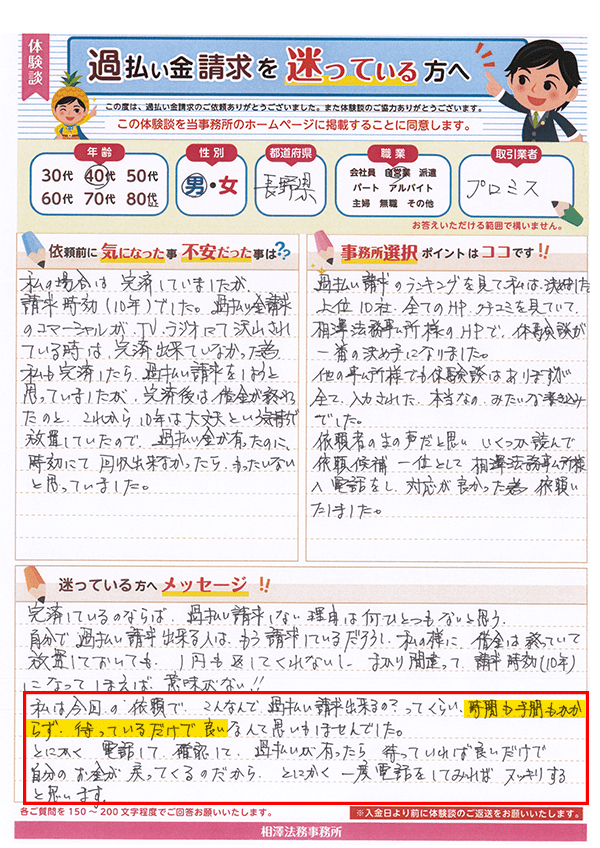 体験談
過払い金請求を迷っている方へ
この度は、過払い金請求のご依頼ありがとうございました。また体験談のご協力ありがとうございます。
この体験談を当事務所のホームページに掲載することに同意します。
年齢
30代 40代 50代
60代 70代 80代以上
性別
男・女
都道府県
長野県
職業
会社員 自営業 派遣
パート アルバイト
主婦 無職 その他
取引業者
プロミス
お答えいただける範囲で構いません。
依頼前に気になった事 不安だった事は??
私の場合は、完済していましたが、
請求時効(10年)でした。過払い金請求
のコマーシャルが、TV、ラジオにて沢山され
ている時は、完済出来ていなかった為
私も完済したら、過払い請求をしようと
思っていましたが、完済後は借金が終わっ
たのと、これから10年は大丈夫という
放置していたので、過払い金が有ったのに、
時効にて回収出来なかったら、もったいない
と思っていました。
事務所選択ポイントはココです!!
過払い請求のランキングを見て私は決めました
上位10社、全てのHP、クチコミを見ていて、
相澤法務事務所様のHPで、体験談が
一番の決め手になりました。
他の事ム所様でも体験談はありますが
全て、入力された、本当なの、みたいな書き込み
でした。
依頼者の生の声だと思い いくつか読んで
依頼候補 一位として 相澤法務事ム所様
へ電話をし、対応が良かった為 依頼い
たしました。
迷っている方へメッセージ!!
完済しているのならば、過払い請求しない理由は何ひとつもないと思う。
自分で過払い請求出来る人は、もう請求しているだろうし、私の様に、借金は終っていて
放置しておいても、1円も返してくれないし、まかり間違って、請求時効(10年)
になってしまえば、意味がない!!
私は今回の依頼で、こんなんで過払い請求出来るの?ってくらい、時間も手間もかか
らず、待っているだけで良いなんて思いもませんでした。
とにかく 電話して、確認して、過払いが有ったら 待っていれば良いだけで
自分のお金が戻ってくるのだから、とにかく一度電話をしてみれば スッキリする
と思います。
各ご質問を150~200文字程度でご回答お願いいたします。
※入金日より前に体験談のご返送をお願いいたします。
相澤法務事務所